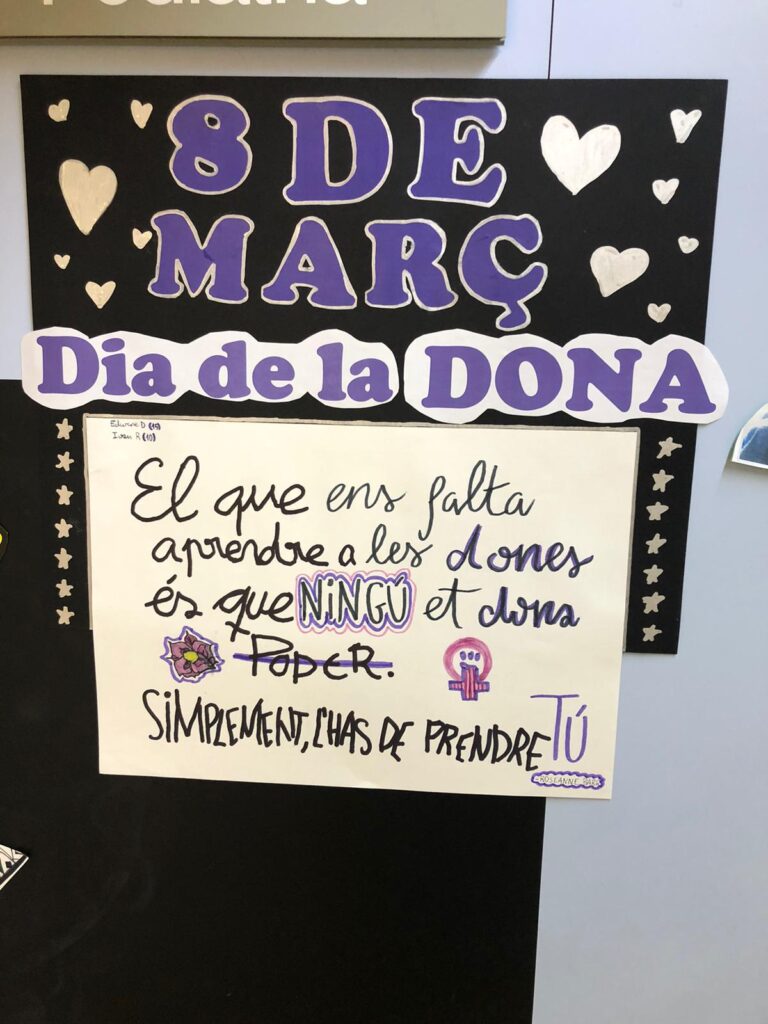 Pediatria
8 DE
MARÇ
Dia de la DONA
Iván R (10)
El que ens falta
aprendre a les dones
és que NINGÚ et dona
PODER.
SIMPLEMENT, L'HAS DE PRENDRE TÚ